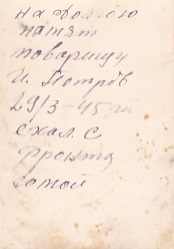 на Долгою
памят
товарищу
И. Петров
29/3-45 г
ехал с
фронта
домой